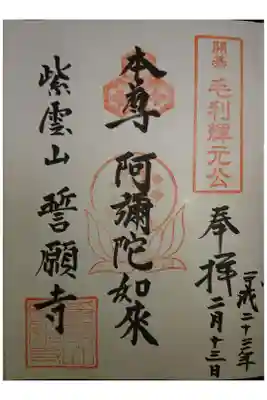 開基
毛利輝元公
奉拝
平成二十三年
二月十三日
本尊 阿彌陀如來
紫雲山 誓願寺